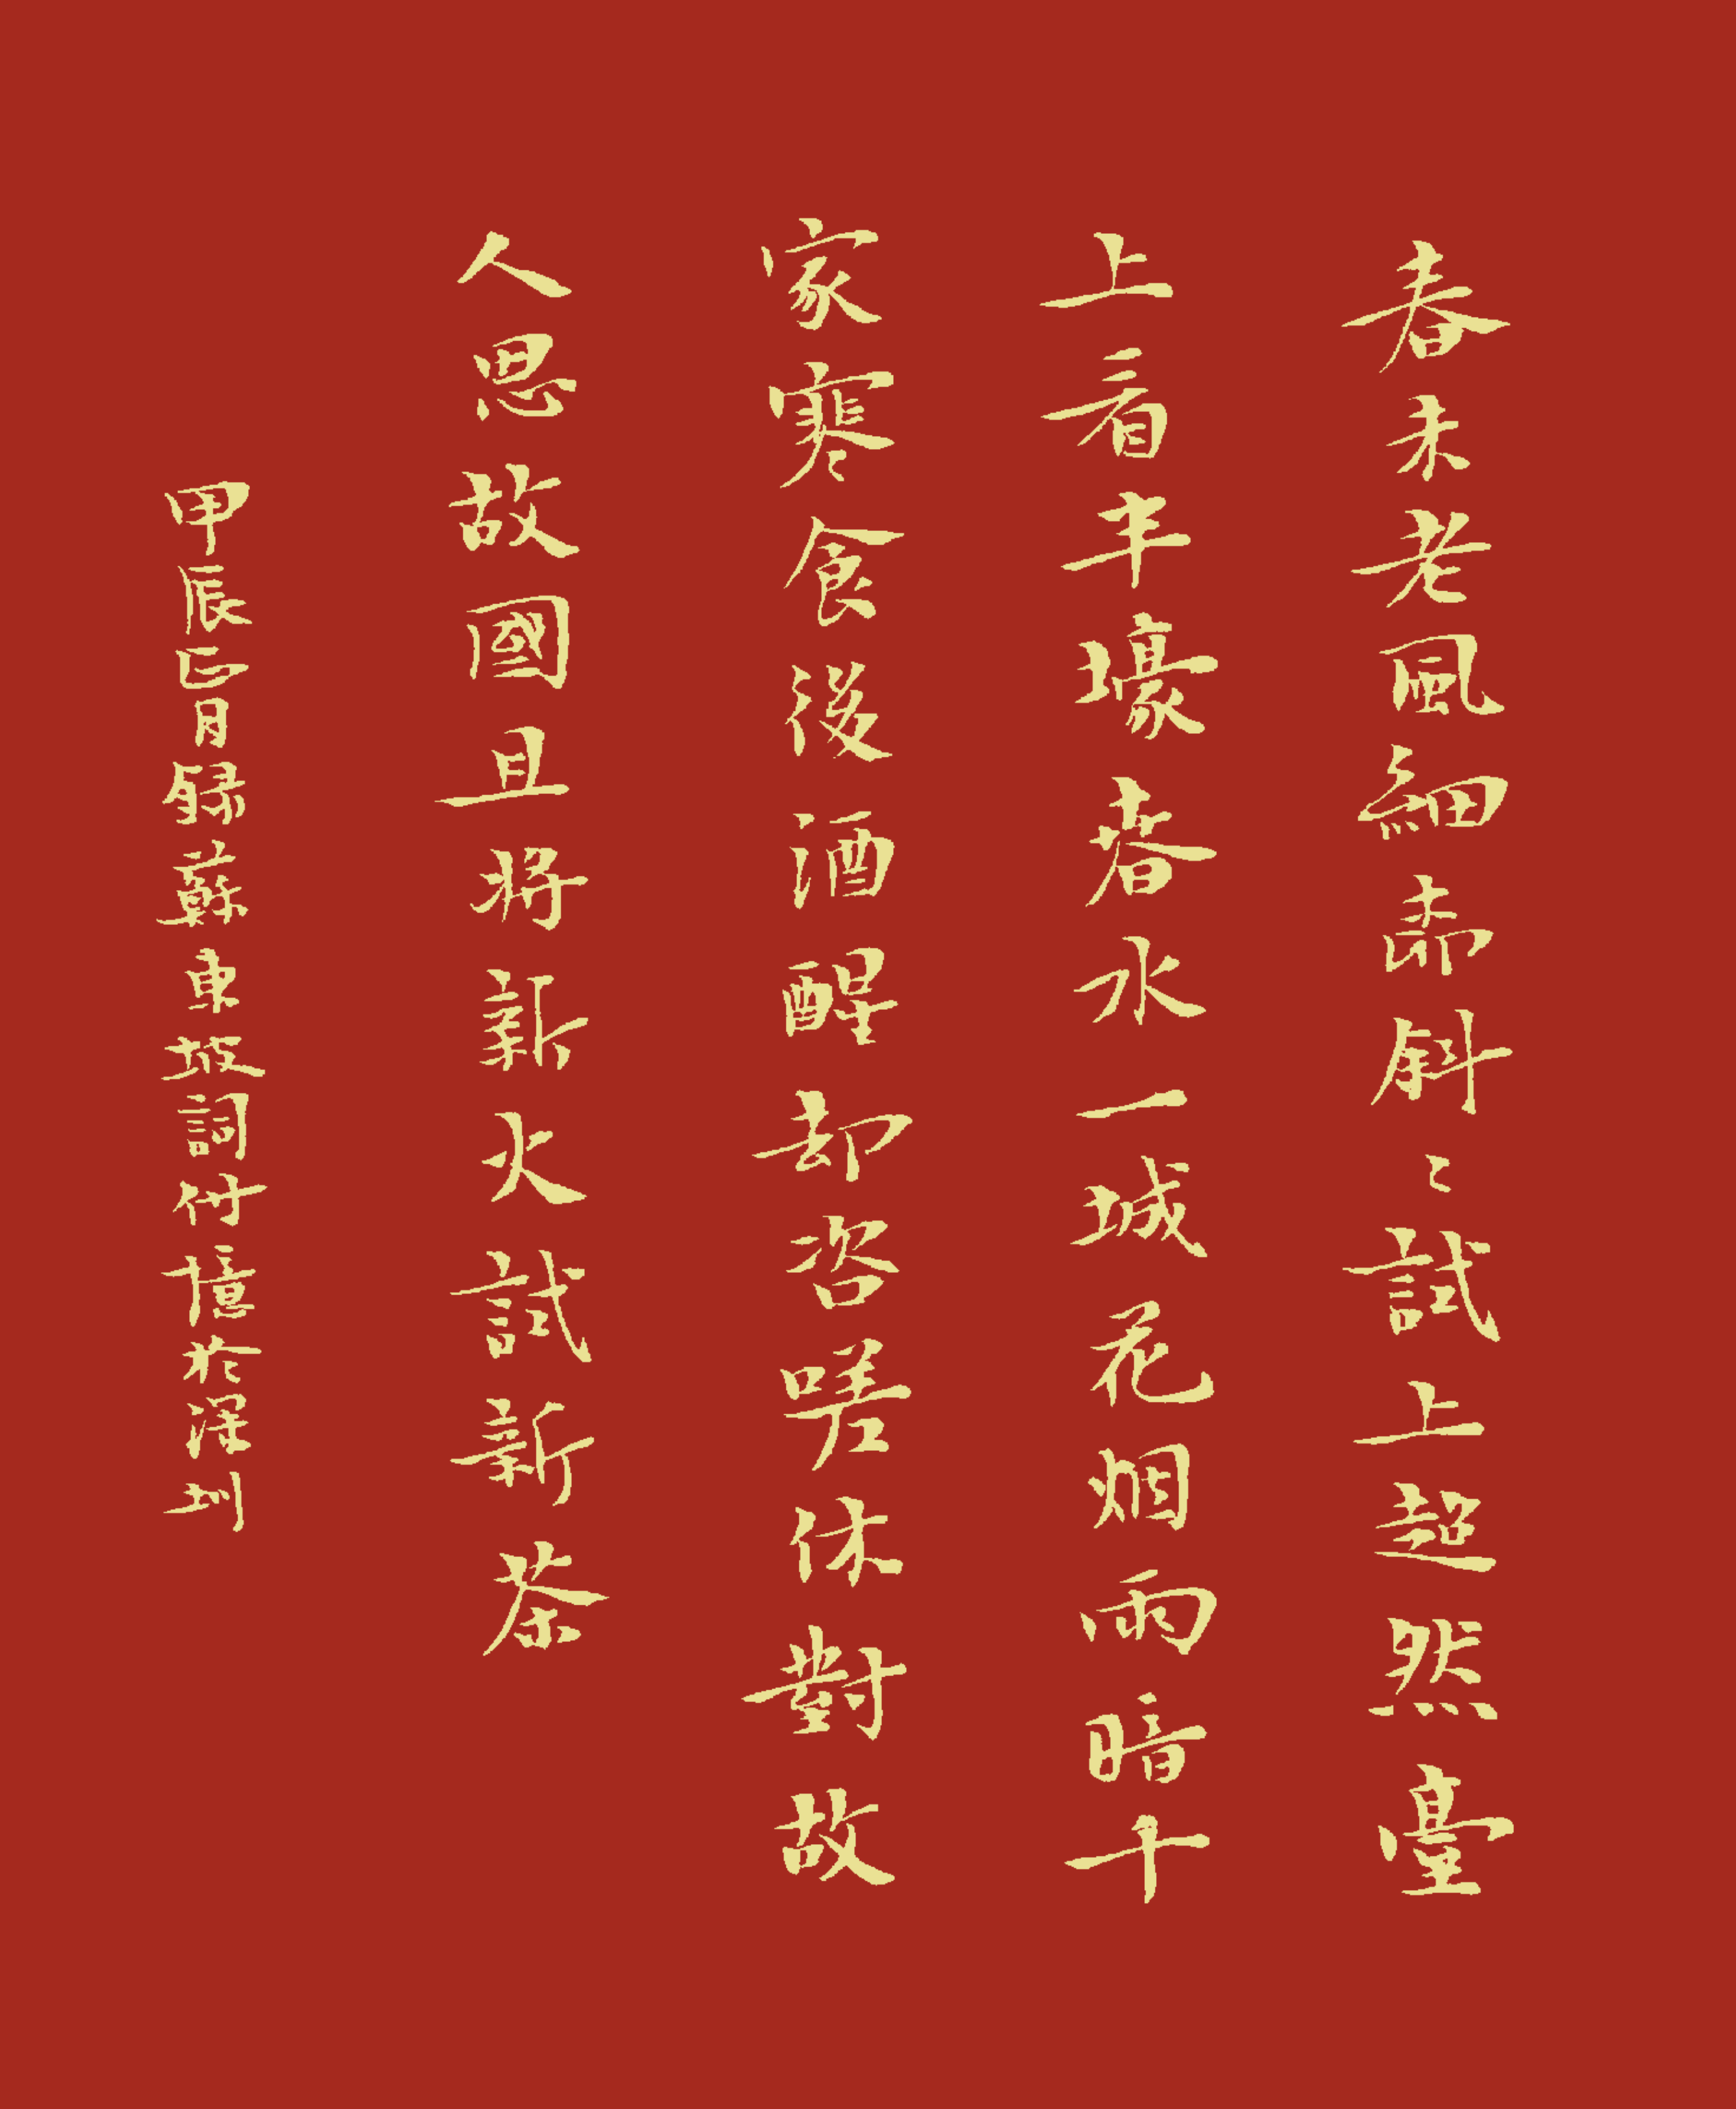 春未老風細斜〻試上超然臺
上看半壕春水一城花烟雨暗千
家寒食後酒醒却咨嗟休對故
人思故國且將新火試新茶
甲辰月錄蘇東坡詞於深圳